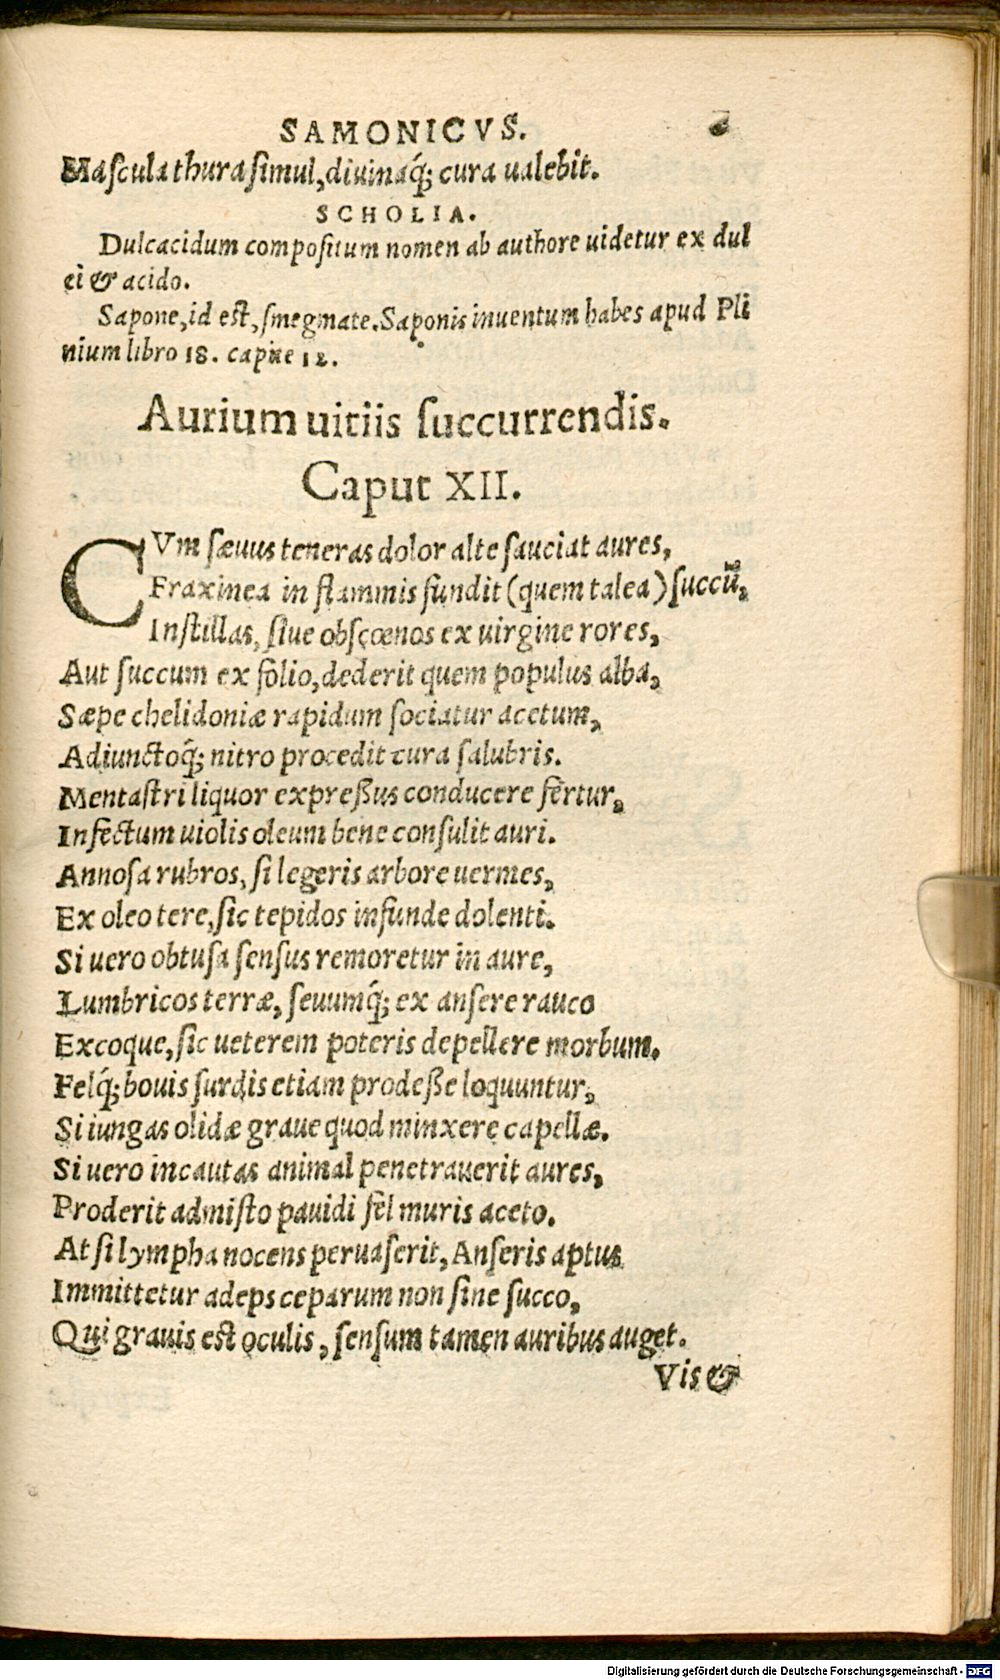 SAMONICVS.
Maſcula thura ſimul, diuinaq́; cura ualebit.
SCHOLIA.
Dulcacidum compoſitum nomen ab authore uidetur ex dul
ci & acido.
Sapone, id eſt, ſmegmate. Saponis inuentum habes apud Pli
nium libro 18. capite 12.
Aurium uitiis ſuccurrendis.
Caput XII.
CVm ſæuus teneras dolor alte ſauciat aures,
Fraxinea in flammis fundit (quem talea) ſuccũ,
Inſtillas, ſiue obſcœnos ex uirgine rores,
Aut ſuccum ex folio, dederit quem populus alba,
Sæpe chelidoniæ rapidum ſociatur acetum,
Adiunctoq́; nitro procedit cura ſalubris.
Mentaſtri liquor expreßus conducere fertur,
Infectum uiolis oleum bene conſulit auri.
Annoſa rubros, ſi legeris arbore uermes,
Ex oleo tere, ſic tepidos infunde dolenti.
Si uero obtuſa ſenſus remoretur in aure,
Lumbricos terræ, ſeuumq́; ex anſere rauco
Excoque, ſic ueterem poteris depellere morbum.
Felq́; bouis ſurdis etiam prodeße loquuntur,
Si iungas olidæ graue quod minxere capellæ.
Si uero incautas animal penetrauerit aures,
Proderit admiſto pauidi fel muris aceto.
At ſi lympha nocens peruaſerit, Anſeris aptus
Immittetur adeps ceparum non ſine ſucco,
Qui grauis eſt oculis, ſenſum tamen auribus auget.
Vis &
Digitalisierung gefördert durch die Deutsche Forschungsgemeinschaft - DFG